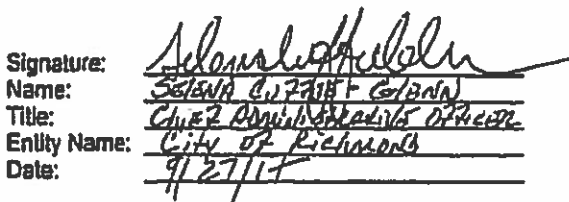 Signature:
Name: SELENA CUFFEE GLENN
Title: CHIEF ADMINISTRATIVE OFFICER
Entity Name: City OF RICHMOND
Date: 9/27/17